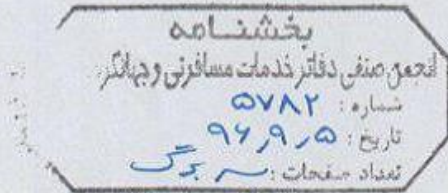 بخشنامه
انجمن صنفی دفاتر خدمات مسافرتی و جهانگر
شماره : ۵۷۸۲
تاریخ : ۹۶٫۹٫۵
تعداد صفحات : سه برگ